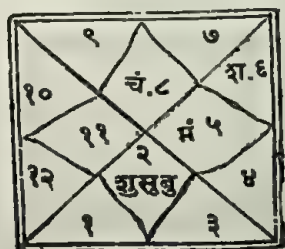 ९ ७
चं.८ श.६
१०
११ मं ५
२
१२ शुसुबु ४
१ ३